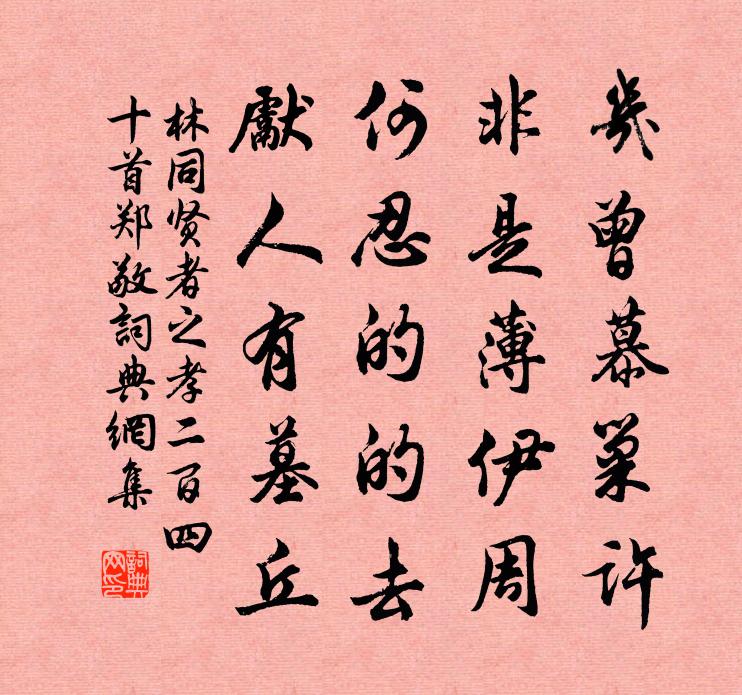 幾曾慕巢許
非是薄伊周
何忍的的去
獻人有墓丘
林同贤者之孝二百四
十首郑敬詞典網集
詞典
网印